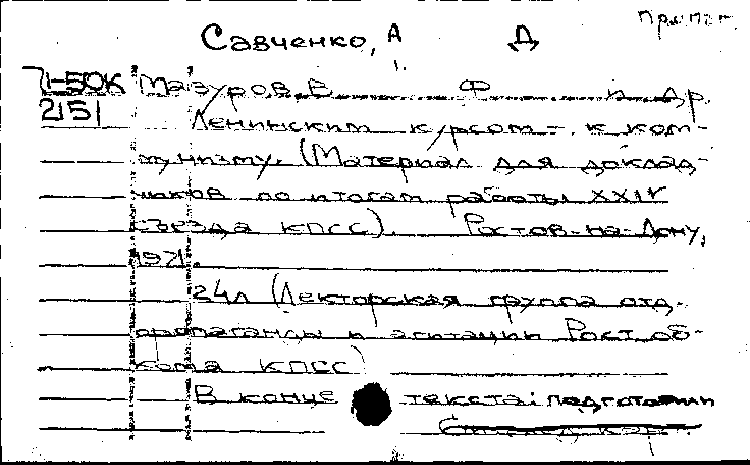 Савченко, А Д
71-50К Мазуров, В Ф и др.
2151 Ленинским курсом - к ком-
мунизму. (Материал для доклад-
чиков по итогам работы XXIV
съезда КПСС). Ростов-на-Дону,
1971.
24л (Лекторская группа отд.
пропаганды и агитации Рост. об-
кома КПСС)
В конце текста: подготовили